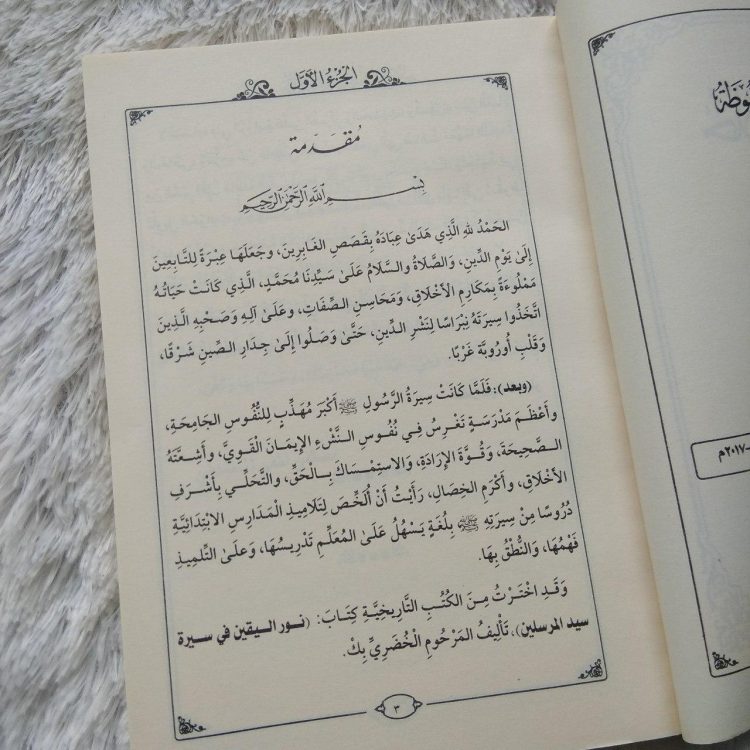 الجُزءُ الأَوَّل
مُقَدِّمَة
بِسْمِ اللَّهِ الرَّحْمَنِ الرَّحِيمِ
الحَمْدُ للهِ الَّذِي هَدَىٰ عِبَادَهُ بِقَصَصِ الغَابِرِينَ، وجَعَلَهَا عِبْرَةً لِلتَّابِعِينَ
إِلَىٰ يَوْمِ الدِّينِ، وَالصَّلَاةُ والسَّلَامُ عَلَىٰ سَيِّدِنَا مُحَمَّدٍ، الَّذِي كَانَتْ حَيَاتُهُ
مَمْلُوءَةً بِمَكَارِمِ الأَخْلَاقِ، وَمَحَاسِنِ الصِّفَاتِ، وعَلَىٰ آلِهِ وَصَحْبِهِ الَّذِينَ
اتَّخَذُوا سِيرَتَهُ نِبْرَاسًا لِنَشْرِ الدِّينِ، حَتَّىٰ وَصَلُوا إِلَىٰ جِدَارِ الصِّينِ شَرْقًا،
وَقَلْبِ أُورُوبَّةَ غَرْبًا.
(وبعد): فَلَمَّا كَانَتْ سِيرَةُ الرَّسُولِ ﷺ أَكْبَرَ مُهَذِّبٍ لِلنُّفُوسِ الجَامِحَةِ،
وأَعْظَمَ مَدْرَسَةٍ تَغْرِسُ فِي نُفُوسِ النَّشْءِ الإِيمَانَ القَوِيَّ، وأَشِعَّتَهُ
الصَّحِيحَةَ، وَقُوَّةَ الإِرَادَةِ، وَالاسْتِمْسَاكَ بِالْحَقِّ، والتَّحَلِّي بِأَشْرَفِ
الأَخْلَاقِ، وأَكْرَمِ الخِصَالِ، رَأَيْتُ أَنْ أُلَخِّصَ لِتَلَامِيذِ المَدَارِسِ الابْتِدَائِيَّةِ
دُرُوسًا مِنْ سِيرَتِهِ ﷺ بِلُغَةٍ يَسْهُلُ عَلَىٰ المُعَلِّمِ تَدْرِيسُهَا، وَعَلَىٰ التِّلْمِيذِ
فَهْمُهَا، وَالنُّطْقُ بِهَا.
وَقَدِ اخْتَرْتُ مِنَ الكُتُبِ التَّارِيخِيَّةِ كِتَابَ: (نور اليقين في سيرة
سيد المرسلين)، تَأْلِيفُ المَرْحُومِ الْخُضَرِيِّ بِكْ.
٣
٢٠١٧م